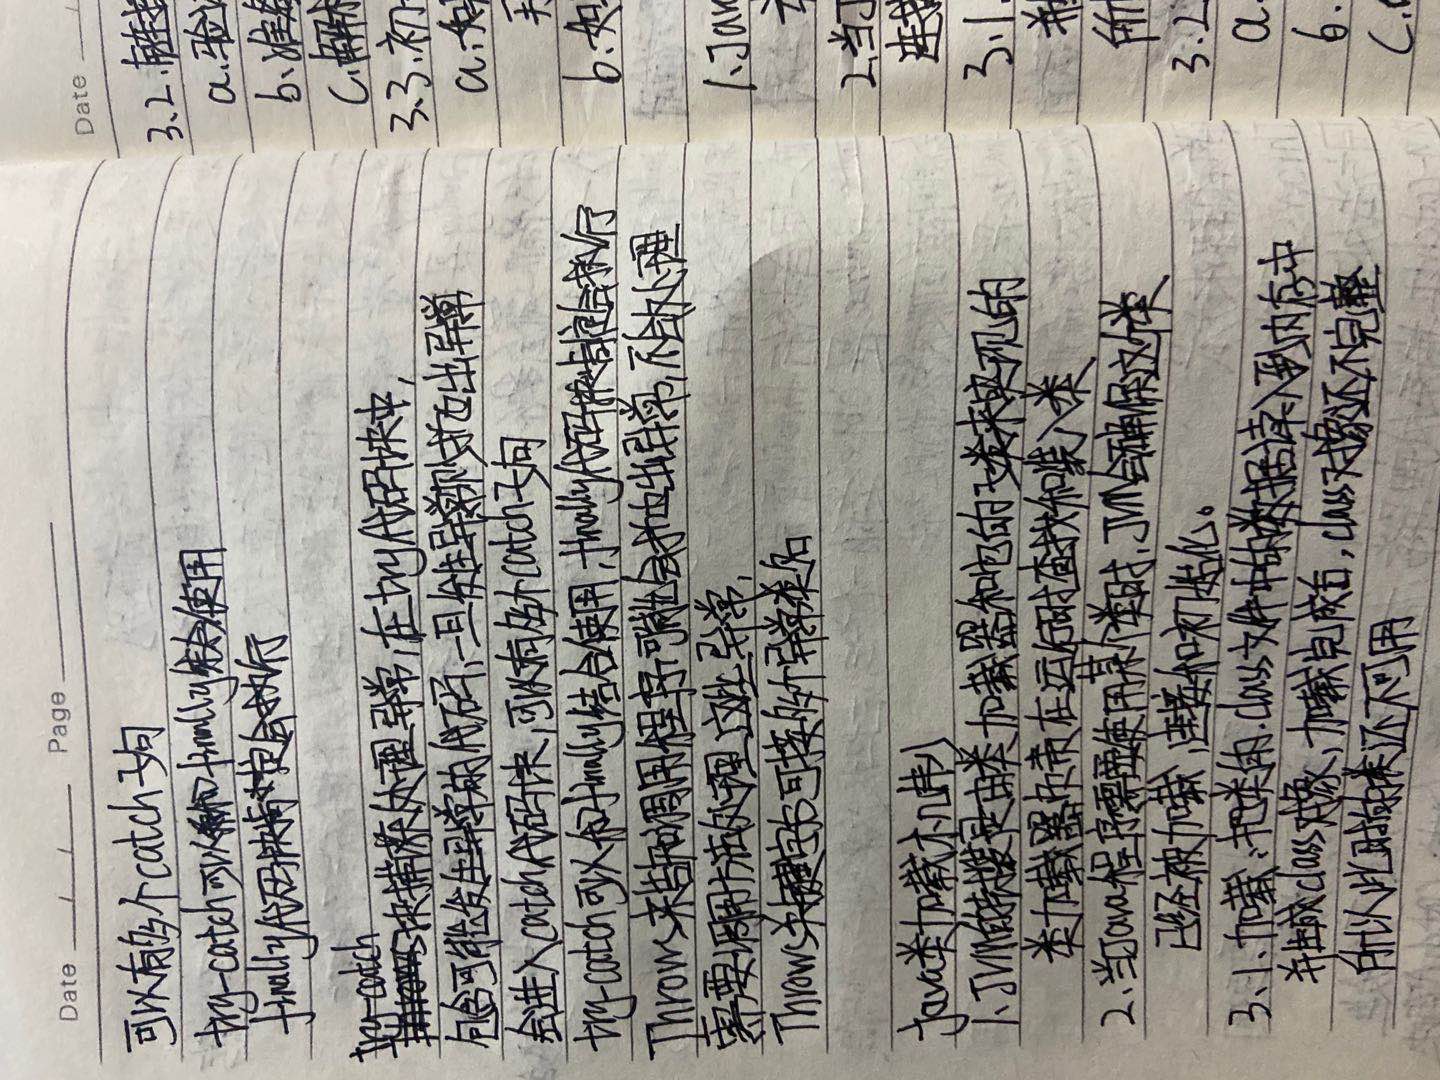 Date / / Page
可以有多个catch子句
try-catch可以和finally结合使用
finally代码块肯定会执行
try-catch
throws块捕获处理异常,在try代码块中,
包含可能发生异常的代码,一旦发生异常则抛出异常
会进入catch代码块,可以有多个catch子句
try-catch可以和finally结合使用,finally代码块肯定会执行
Throws来告知调用程序可能会抛出异常,不会处理
需要调用方法处理这些异常,
Throws关键字后可接多个异常类名
java类加载机制
1、JVM的装是由类加载器和它的子类来实现的
类加载器负责在运行时查找和装入类
2、当Java程序需要使用某个类时,JVM会确保这个类
已经被加载,连接和初始化。
3、1、加载:把类的.class文件中的数据读入到内存中
并生成class对象,加载完成后,class对象还不完整
所以此时的类还不可用
Date /
3.2.链接
a.验
b、准备
C.解
3.3.初
a.如
b.如
1.Jav
2.当J
连接
3.1.
并
所
3.2
a.
b.
C.